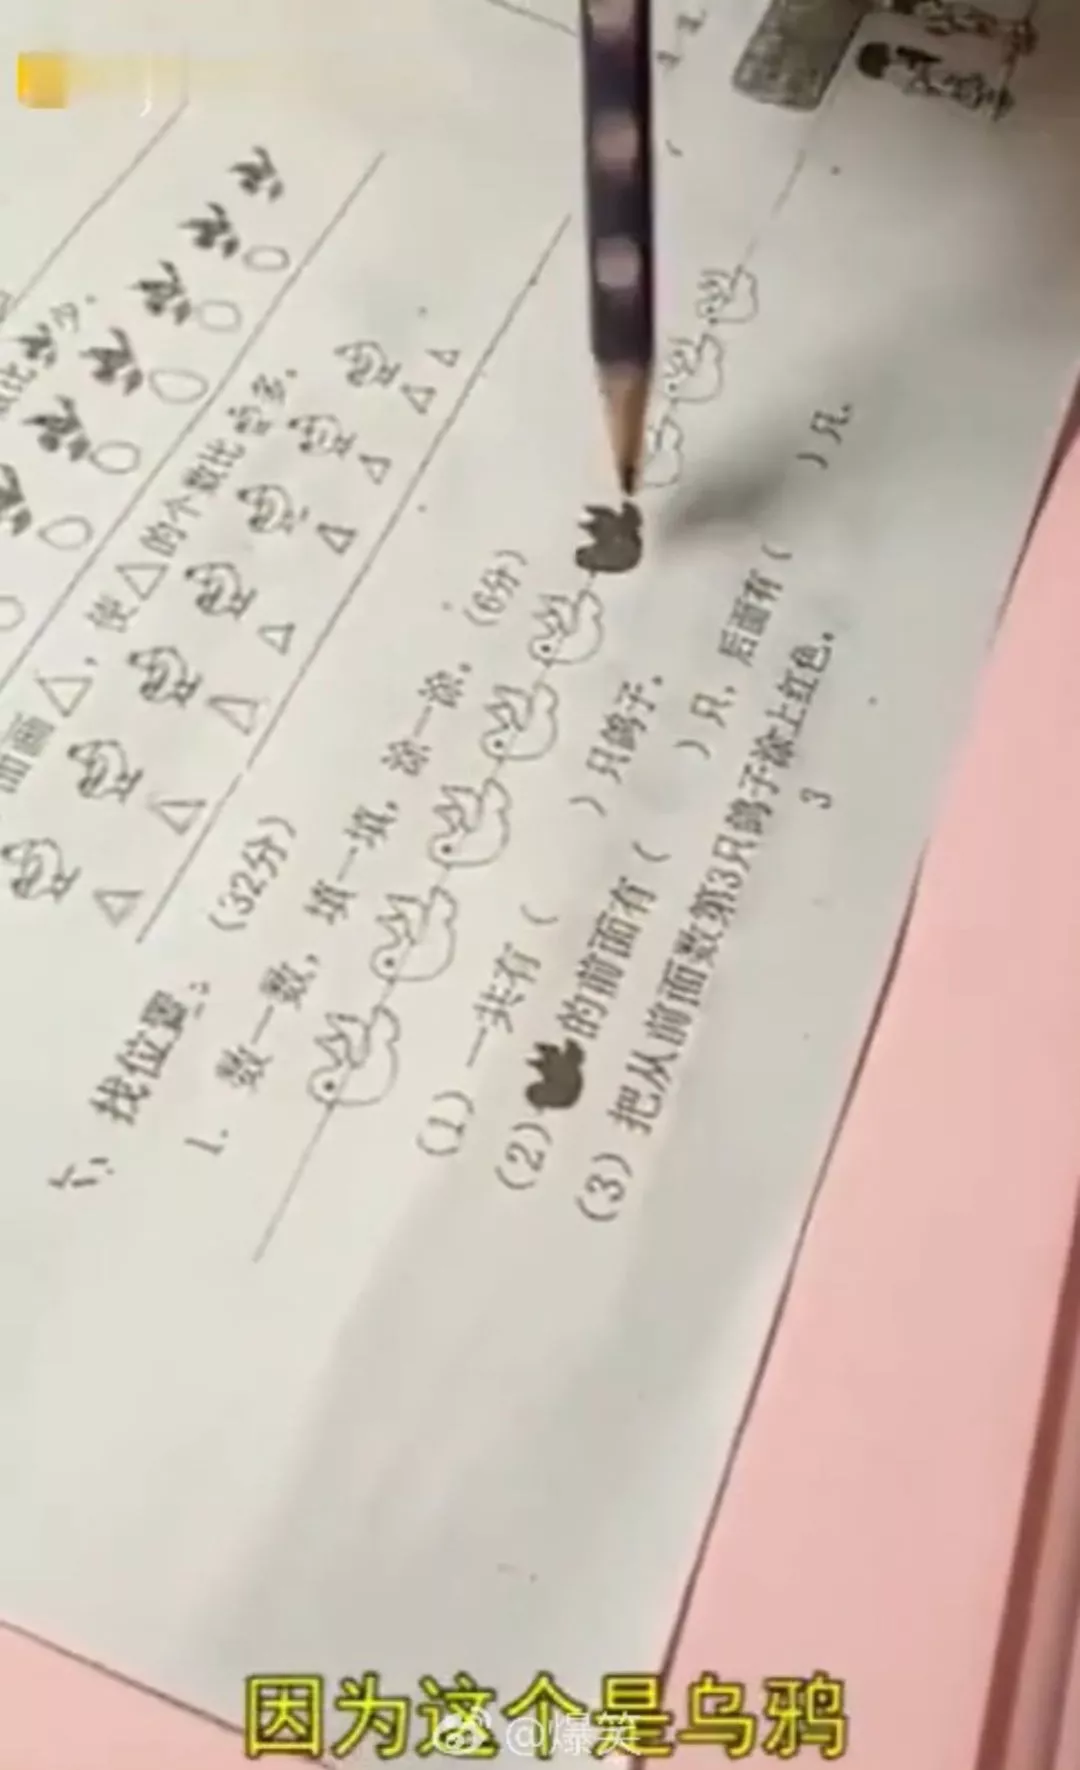 数比少。
面画△，使△的个数比多。
六、找位置。（32分）
1. 数一数，填一填，涂一涂。（6分）
（1）一共有（ ）只鸽子。
（2）的前面有（ ）只，后面有（ ）只。
（3）把从前面数第3只鸽子涂上红色。
3
因为这个是乌鸦
@爆笑